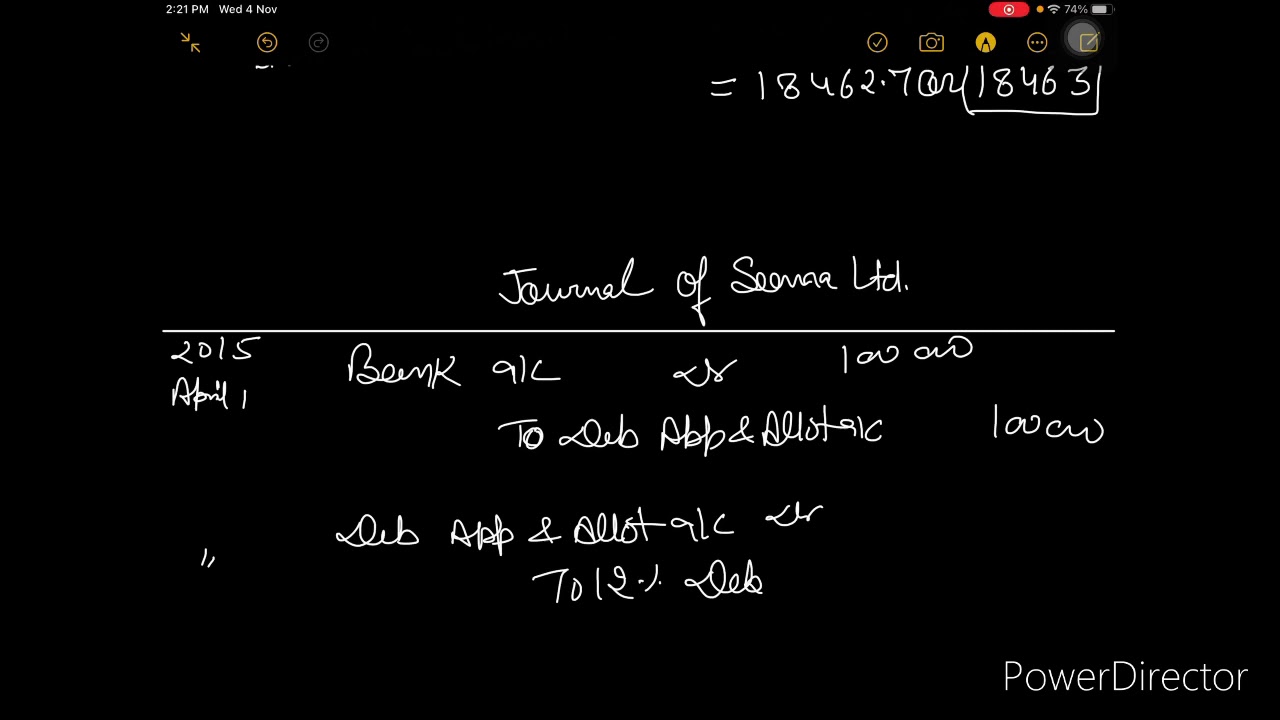 2:21 PM Wed 4 Nov 74%
= 18462.7 or 18463
Journal of Seema Ltd.
2015 Bank a/c Dr 100 000
April 1
To Deb App & Allot a/c 100 000
Deb App & Allot a/c Dr
"
To 12% Deb
PowerDirector